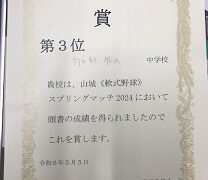 賞
第３位
中学校
貴校は、山城《軟式野球》
スプリングマッチ2024において
頭書の成績を得られましたので
これを賞します。
令和６年５月５日